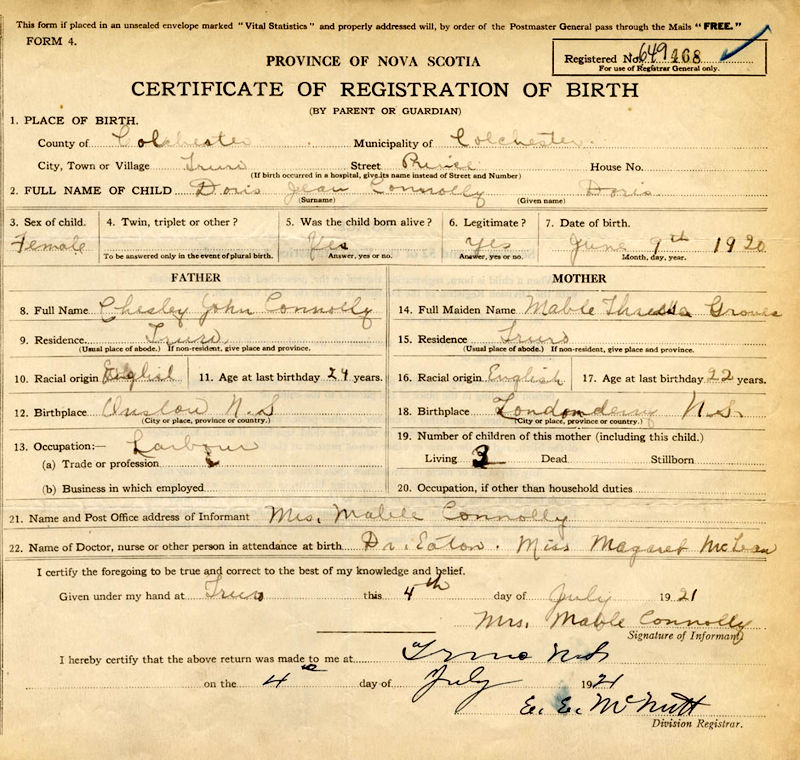 This form if placed in an unsealed envelope marked "Vital Statistics" and properly addressed will, by order of the Postmaster General pass through the Mails "FREE."
FORM 4.
Registered No. 649 168
For use of Registrar General only.
PROVINCE OF NOVA SCOTIA
CERTIFICATE OF REGISTRATION OF BIRTH
(BY PARENT OR GUARDIAN)
1. PLACE OF BIRTH.
County of Colchester Municipality of Colchester.
City, Town or Village Truro Street Prince House No.
(If birth occurred in a hospital, give its name instead of Street and Number)
2. FULL NAME OF CHILD Doris Jean Connolly Doris
(Surname) (Given name)
3. Sex of child. 4. Twin, triplet or other? 5. Was the child born alive? 6. Legitimate? 7. Date of birth.
Female Yes Yes June 9th 1920
To be answered only in the event of plural birth. Answer, yes or no. Answer, yes or no. Month, day, year.
FATHER MOTHER
8. Full Name Chesley John Connolly 14. Full Maiden Name Mable Groves
9. Residence Truro 15. Residence Truro
(Usual place of abode.) If non-resident, give place and province. (Usual place of abode.) If non-resident, give place and province.
10. Racial origin English 11. Age at last birthday 24 years. 16. Racial origin English 17. Age at last birthday 22 years.
12. Birthplace Onslow N.S 18. Birthplace Londonderry N.S.
(City or place, province or country.) (City or place, province or country.)
13. Occupation:— Labour 19. Number of children of this mother (including this child.)
(a) Trade or profession Living 3 Dead Stillborn
(b) Business in which employed 20. Occupation, if other than household duties
21. Name and Post Office address of Informant Mrs. Mable Connolly
22. Name of Doctor, nurse or other person in attendance at birth Dr. Eaton. Miss Magaret McLean
I certify the foregoing to be true and correct to the best of my knowledge and belief.
Given under my hand at Truro this 4th day of July 1921
Mrs. Mable Connolly
Signature of Informant
I hereby certify that the above return was made to me at Truro N.S
on the 4th day of July 1921
E. E. McNutt
Division Registrar.